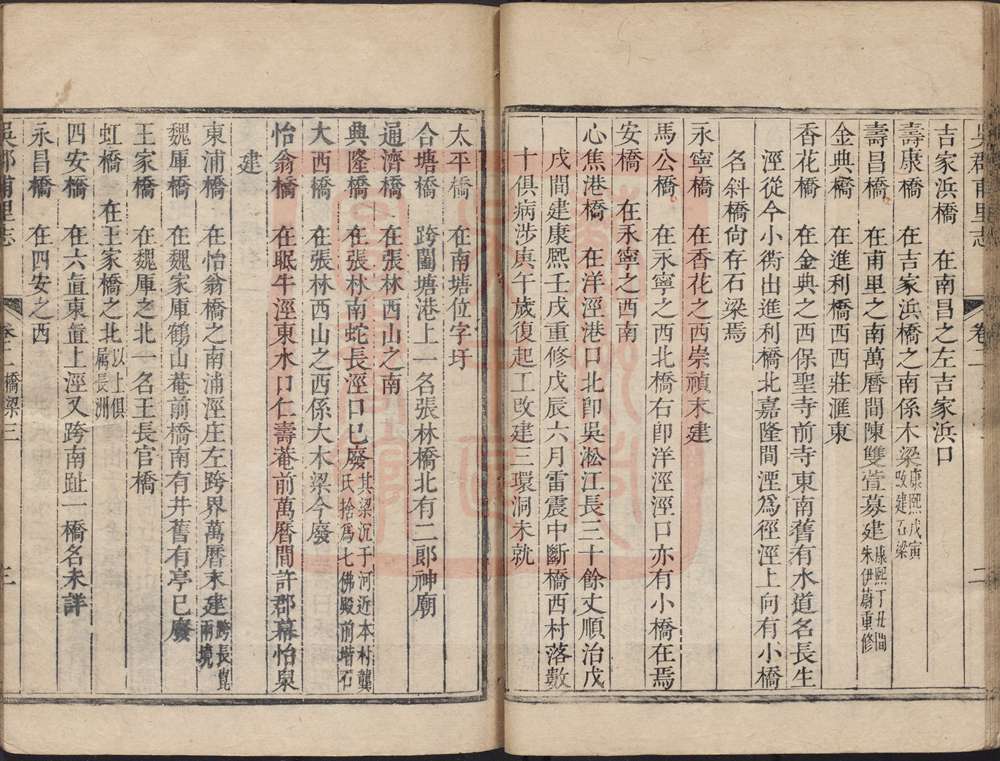 吳郡甫里志 卷二 二
吉家浜橋 在南昌之左吉家浜口
壽康橋 在吉家浜橋之南係木梁康熙戊寅改建石梁
壽昌橋 在甫里之南萬曆間陳雙萱募建康熙丁丑間朱伊蔚重修
金典橋 在進利橋西西莊滙東
香花橋 在金典之西保聖寺前寺東南舊有水道名長生
涇從今小衖出進利橋北嘉隆間湮爲徑涇上向有小橋
名斜橋尙存石梁焉
永寧橋 在香花之西崇禎末建
馬公橋 在永寧之西北橋右卽洋涇涇口亦有小橋在焉
安橋 在永寧之西南
心焦港橋 在洋涇港口北卽吳淞江長三十餘丈順治戊
戌間建康熙壬戌重修戊辰六月雷震中斷橋西村落數
十俱病涉庚午歲復起工改建三環洞未就
太平橋 在南塘位字圩
合塘橋 跨闔塘港上一名張林橋北有二郎神廟
通濟橋 在張林西山之南
典隆橋 在張林南蛇長涇口已廢其梁沉于河近本村龔氏捨爲七佛殿前堦石
大西橋 在張林西山之西係大木梁今廢
怡翁橋 在眠牛涇東水口仁壽菴前萬曆間許郡幕怡泉
建
東浦橋 在怡翁橋之南浦涇庄左跨界萬曆末建跨長崑兩境
魏庫橋 在魏家庫鶴山菴前橋南有井舊有亭已廢
王家橋 在魏庫之北一名王長官橋
虹橋 在王家橋之北以上俱屬長洲
四安橋 在六直東直上涇又跨南趾一橋名未詳
永昌橋 在四安之西
吳郡甫里志 卷二橋梁三 三